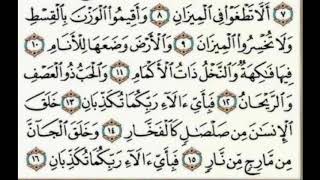 ٧ أَلَّا تَطْغَوْا۟ فِى ٱلْمِيزَانِ ٨ وَأَقِيمُوا۟ ٱلْوَزْنَ بِٱلْقِسْطِ
وَلَا تُخْسِرُوا۟ ٱلْمِيزَانَ ٩ وَٱلْأَرْضَ وَضَعَهَا لِلْأَنَامِ ١٠
فِيهَا فَـٰكِهَةٌ وَٱلنَّخْلُ ذَاتُ ٱلْأَكْمَامِ ١١ وَٱلْحَبُّ ذُو ٱلْعَصْفِ
وَٱلرَّيْحَانُ ١٢ فَبِأَىِّ ءَالَآءِ رَبِّكُمَا تُكَذِّبَانِ ١٣ خَلَقَ
ٱلْإِنسَـٰنَ مِن صَلْصَـٰلٍ كَٱلْفَخَّارِ ١٤ وَخَلَقَ ٱلْجَآنَّ
مِن مَّارِجٍ مِّن نَّارٍ ١٥ فَبِأَىِّ ءَالَآءِ رَبِّكُمَا تُكَذِّبَانِ ١٦